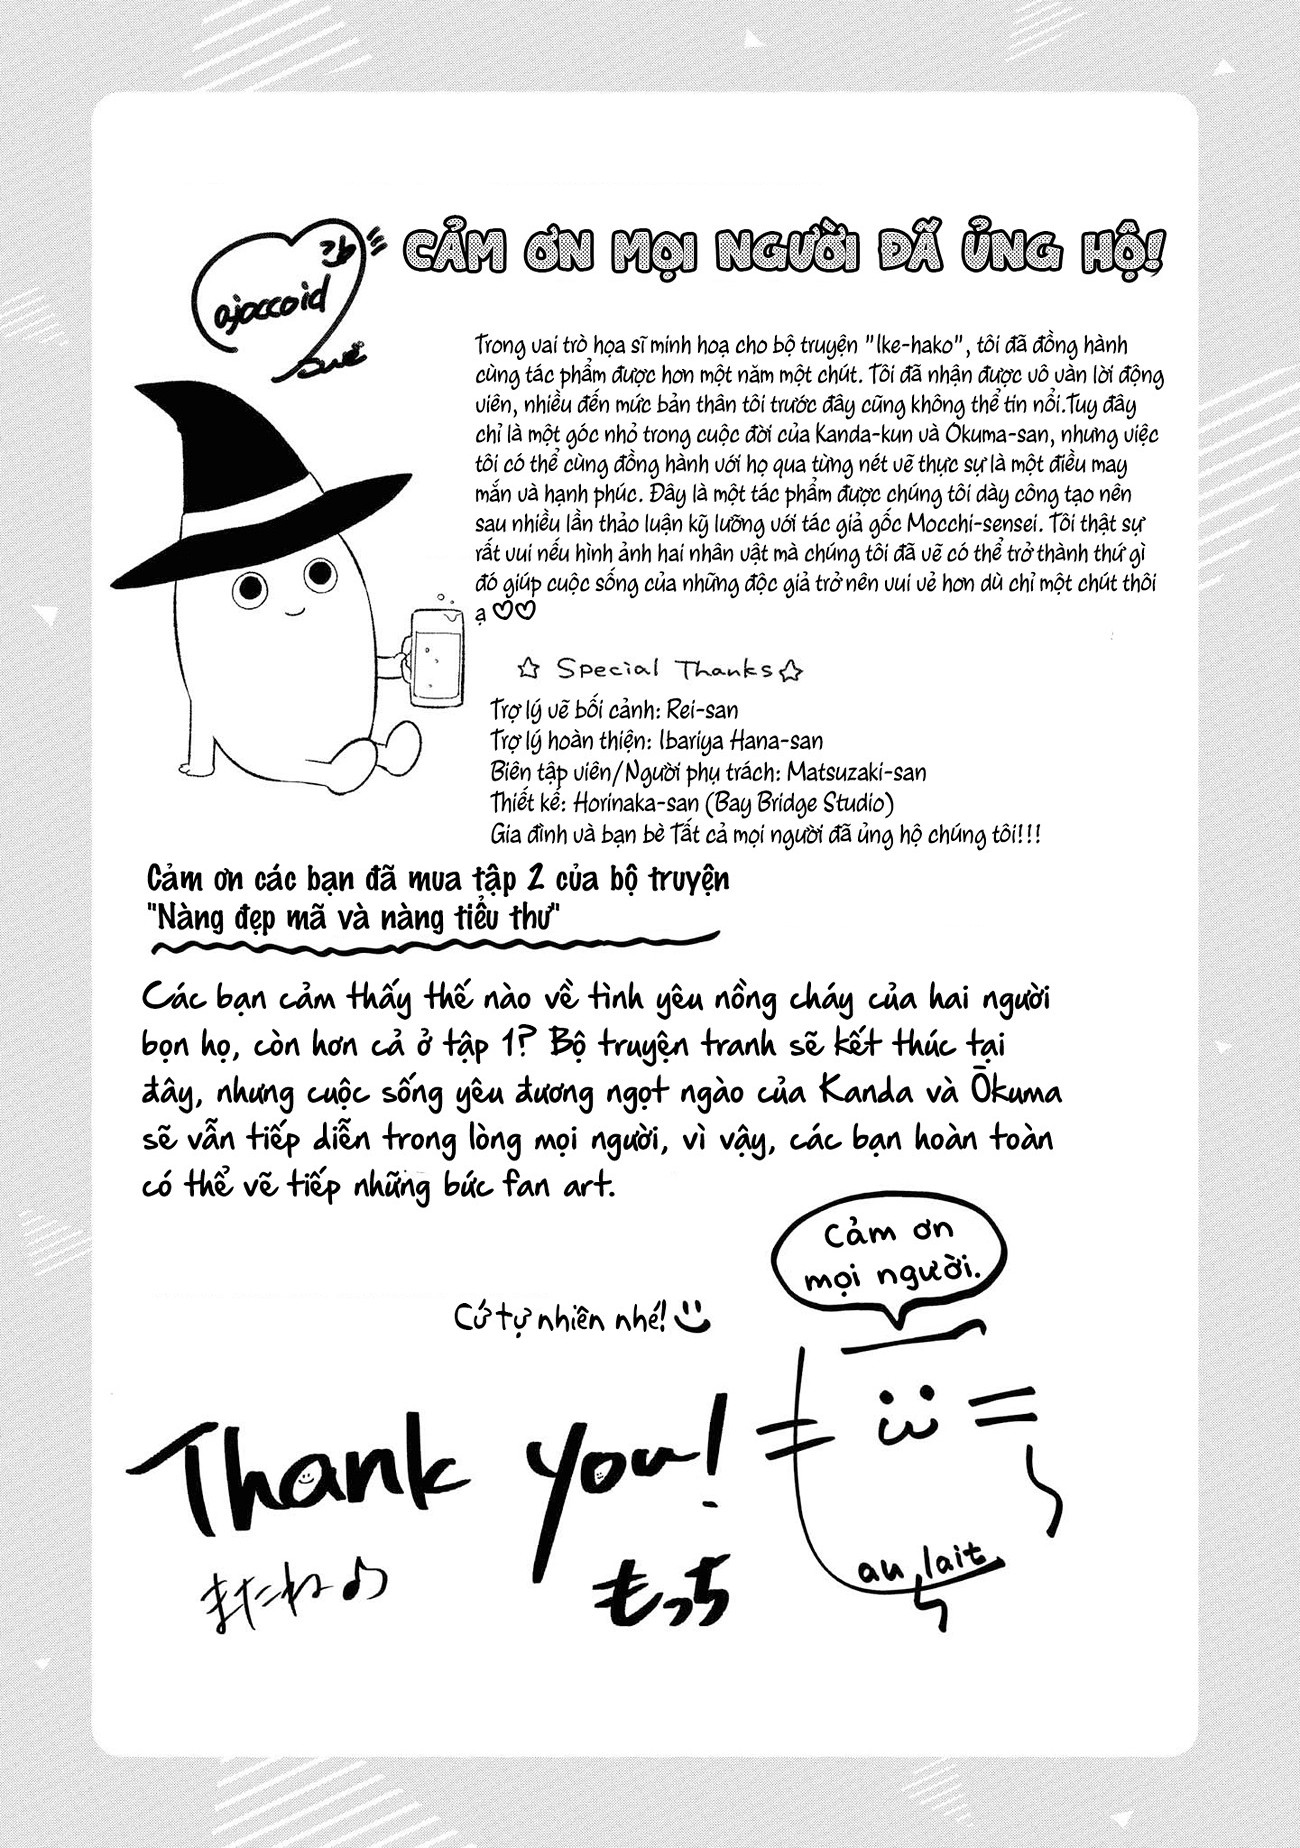 ajoccoid
CẢM ƠN MỌI NGƯỜI ĐÃ ỦNG HỘ!
Trong vai trò họa sĩ minh hoạ cho bộ truyện "Ike-hako", tôi đã đồng hành
cùng tác phẩm được hơn một năm một chút. Tôi đã nhận được vô vàn lời động
viên, nhiều đến mức bản thân tôi trước đây cũng không thể tin nổi.Tuy đây
chỉ là một góc nhỏ trong cuộc đời của Kanda-kun và Ōkuma-san, nhưng việc
tôi có thể cùng đồng hành với họ qua từng nét vẽ thực sự là một điều may
mắn và hạnh phúc. Đây là một tác phẩm được chúng tôi dày công tạo nên
sau nhiều lần thảo luận kỹ lưỡng với tác giả gốc Mocchi-sensei. Tôi thật sự
rất vui nếu hình ảnh hai nhân vật mà chúng tôi đã vẽ có thể trở thành thứ gì
đó giúp cuộc sống của những độc giả trở nên vui vẻ hơn dù chỉ một chút thôi
ạ ♡♡
☆ Special Thanks☆
Trợ lý vẽ bối cảnh: Rei-san
Trợ lý hoàn thiện: Ibariya Hana-san
Biên tập viên/Người phụ trách: Matsuzaki-san
Thiết kế: Horinaka-san (Bay Bridge Studio)
Gia đình và bạn bè Tất cả mọi người đã ủng hộ chúng tôi!!!
Cảm ơn các bạn đã mua tập 2 của bộ truyện
"Nàng đẹp mã và nàng tiểu thư"
Các bạn cảm thấy thế nào về tình yêu nồng cháy của hai người
bọn họ, còn hơn cả ở tập 1? Bộ truyện tranh sẽ kết thúc tại
đây, nhưng cuộc sống yêu đương ngọt ngào của Kanda và Ōkuma
sẽ vẫn tiếp diễn trong lòng mọi người, vì vậy, các bạn hoàn toàn
có thể vẽ tiếp những bức fan art.
Cảm ơn
mọi người.
Cứ tự nhiên nhé!
Thank you!
またね♪
もっち
au lait